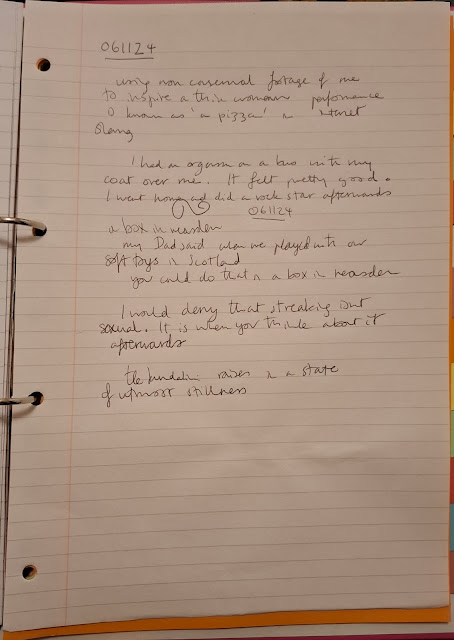 061124
using non consensual footage of me
to inspire a thin womans performance
is known as 'a pizza' in internet
slang
I had an orgasm on a bus with my
coat over me. It felt pretty good.
I went home and did a rock star afterwards
061124
a box in neasden
my Dad said when we played with our
soft toys in Scotland
you could do that in a box in neasden
I would deny that streaking isnt
sexual. It is when you think about it
afterwards
the kundalini raises in a state
of utmost stillness